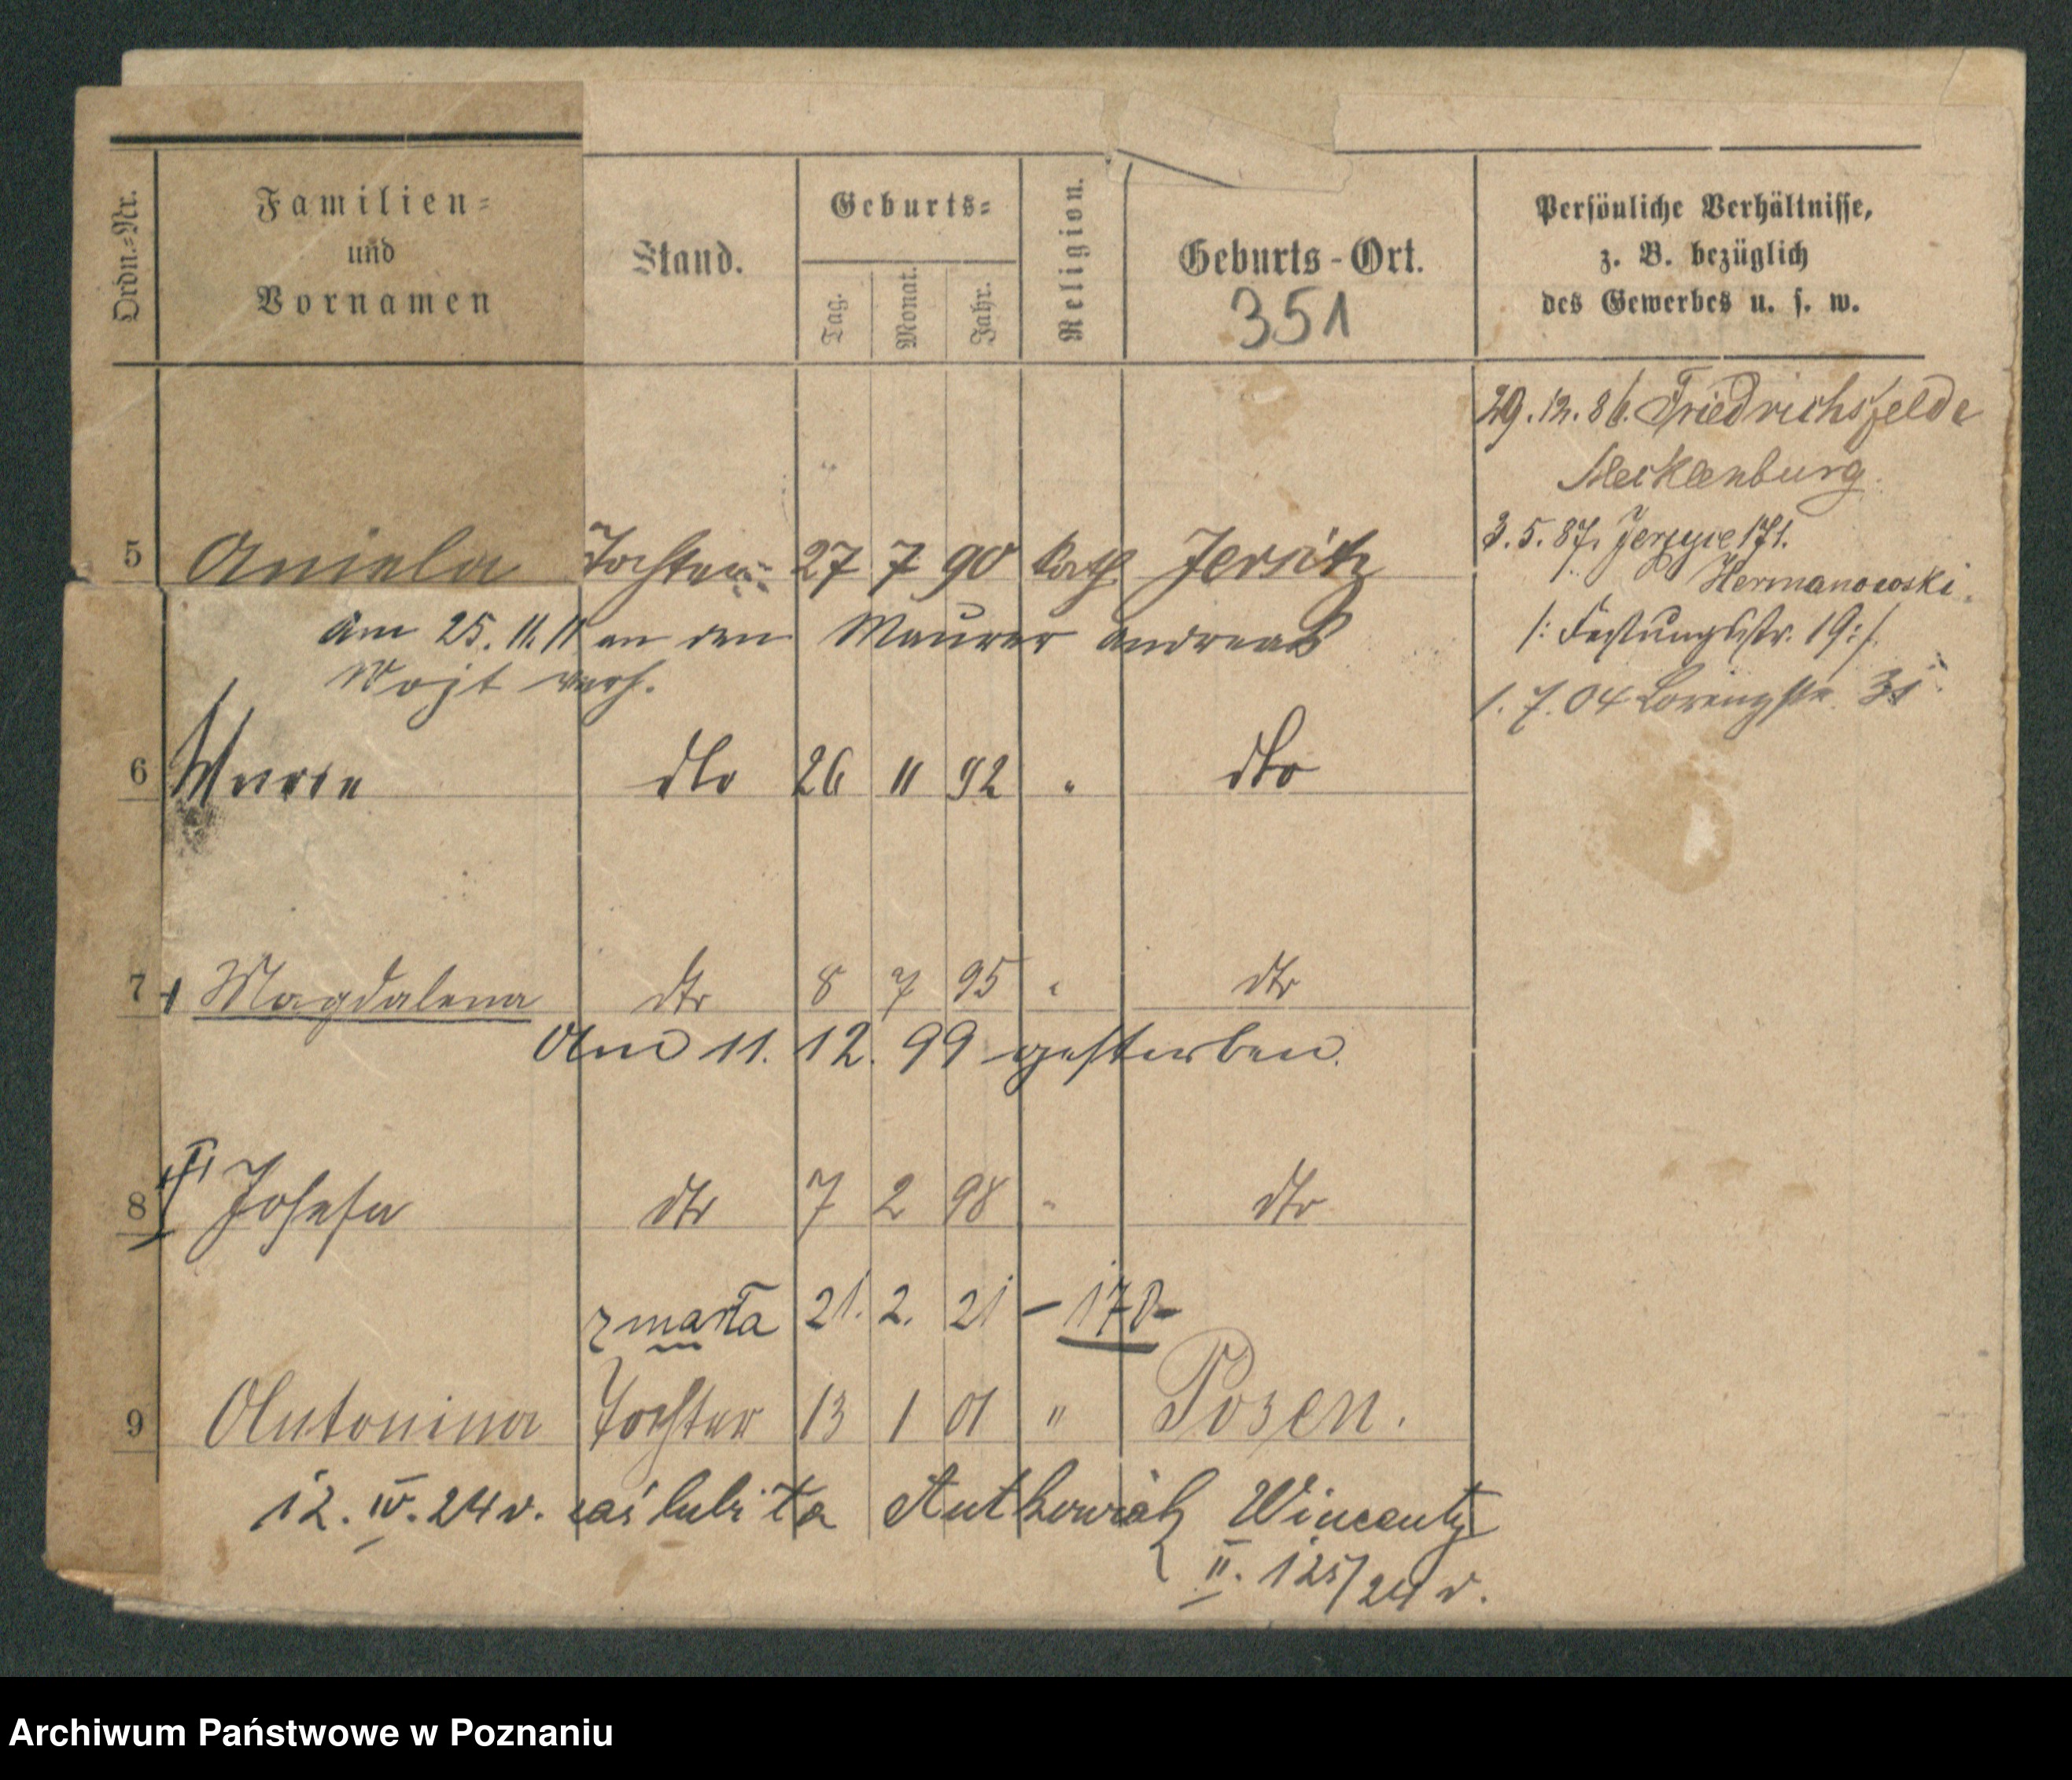 Ordn.-Nr.
Familien-
und
Vornamen
Stand.
Geburts-
Tag.
Monat.
Jahr.
Religion.
Geburts-Ort.
351
Persönliche Verhältnisse,
z. B. bezüglich
des Gewerbes u. s. w.
29.12.86. Friedrichsfelde
Mecklenburg.
3.5.87. Jerzyce 171.
Hermanowski.
/: Festungsstr. 19:/
1.7.04
5 Aniela Tochter 27 7 90 kath Jersitz
Am 25.11.11 an den Maurer Andreas
Wojt verh.
6 dto 26 11 92 " dto
7 Magdalena dto 8 7 95 " dto
Am 11. 12. 99 gestorben.
8 Josefa dto 7 2 98 " dto
zmarła 21. 2. 21 – 178 –
9 Antonina Tochter 13 1 01 " Posen.
12. IV. 24 r. zaślubiła Antkowiak Wincenty
II. 125/24 r.
Archiwum Państwowe w Poznaniu